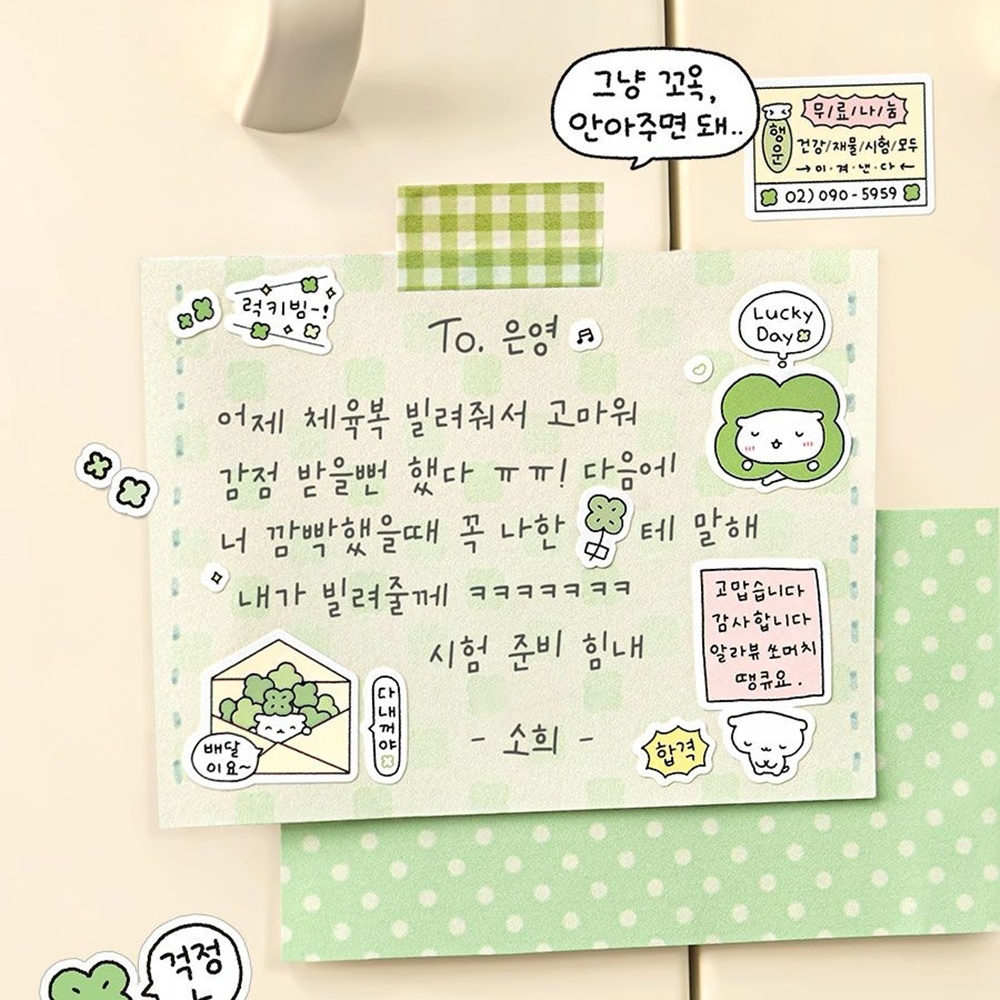 그냥 꼬옥,
안아주면 돼..
무/료/나/눔
행운
건강/재물/시험/모두
→이·겨·낸·다←
02) 090-5959
럭키빔-!
To. 은영
Lucky
Day
어제 체육복 빌려줘서 고마워
감점 받을뻔 했다 ㅠㅠ! 다음에
너 깜빡했을때 꼭 나한 테 말해
내가 빌려줄께 ㅋㅋㅋㅋㅋㅋㅋ
시험 준비 힘내
- 소희 -
고맙습니다
감사합니다
알라뷰 쏘머치
땡큐요.
배달
이요~
다내꺼야
합격
걱정